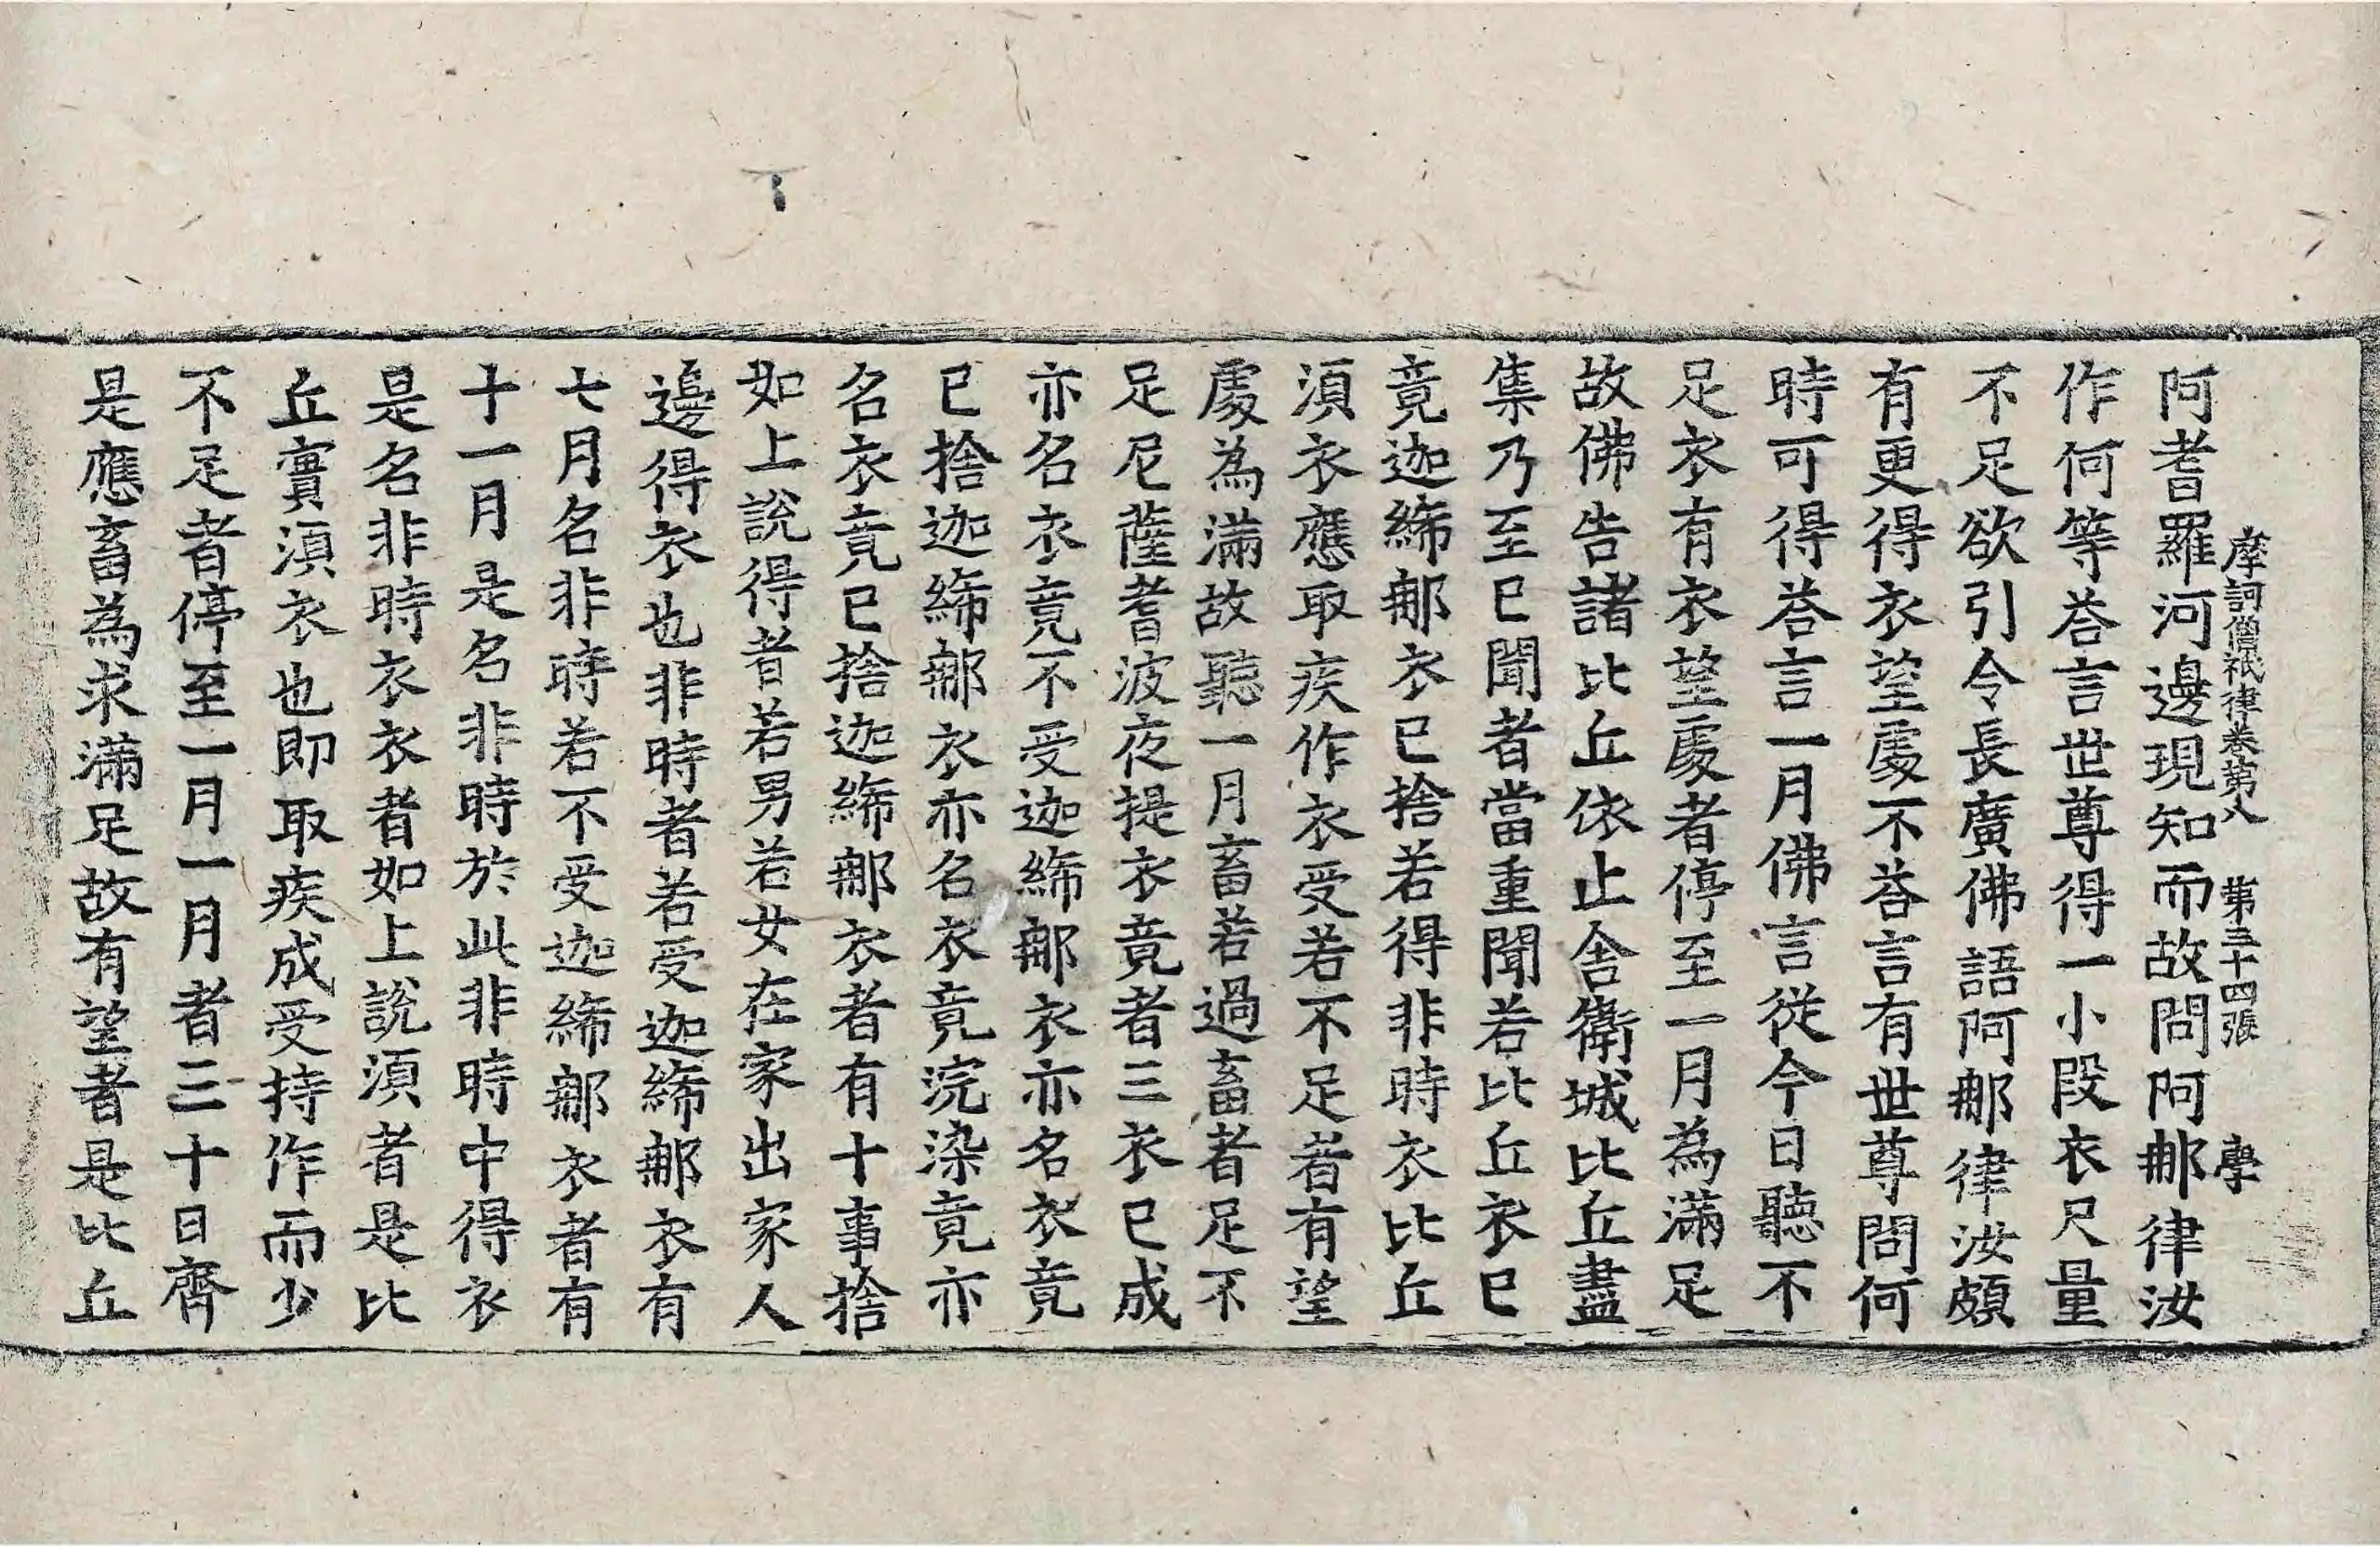 摩訶僧祇律卷第八 第三十四張 學
阿耆羅河邊現知而故問阿那律汝
作何等荅言世尊得一小段衣尺量
不足欲引令長廣佛語阿那律汝頗
有更得衣望處不荅言有世尊問何
時可得荅言一月佛言從今日聽不
足衣有衣望處者停至一月為滿足
故佛告諸比丘依止舎衛城比丘盡
集乃至巳聞者當重聞若比丘衣巳
竟迦絺那衣巳捨若得非時衣比丘
湏衣應取疾作衣受若不足者有望
處為滿故聽一月畜若過畜者足不
足尼薩耆波夜提衣竟者三衣巳成
亦名衣竟不受迦絺那衣亦名衣竟
巳捨迦絺那衣亦名衣竟浣染竟亦
名衣竟巳捨迦絺那衣者有十事捨
如上說得者若男若女在家出家人
邊得衣也非時者若受迦絺那衣有
七月名非時若不受迦絺那衣者有
十一月是名非時於此非時中得衣
是名非時衣衣者如上說湏者是比
丘實湏衣也即取疾成受持作而少
不足者停至一月一月者三十日齊
是應畜為求滿足故有望者是比丘